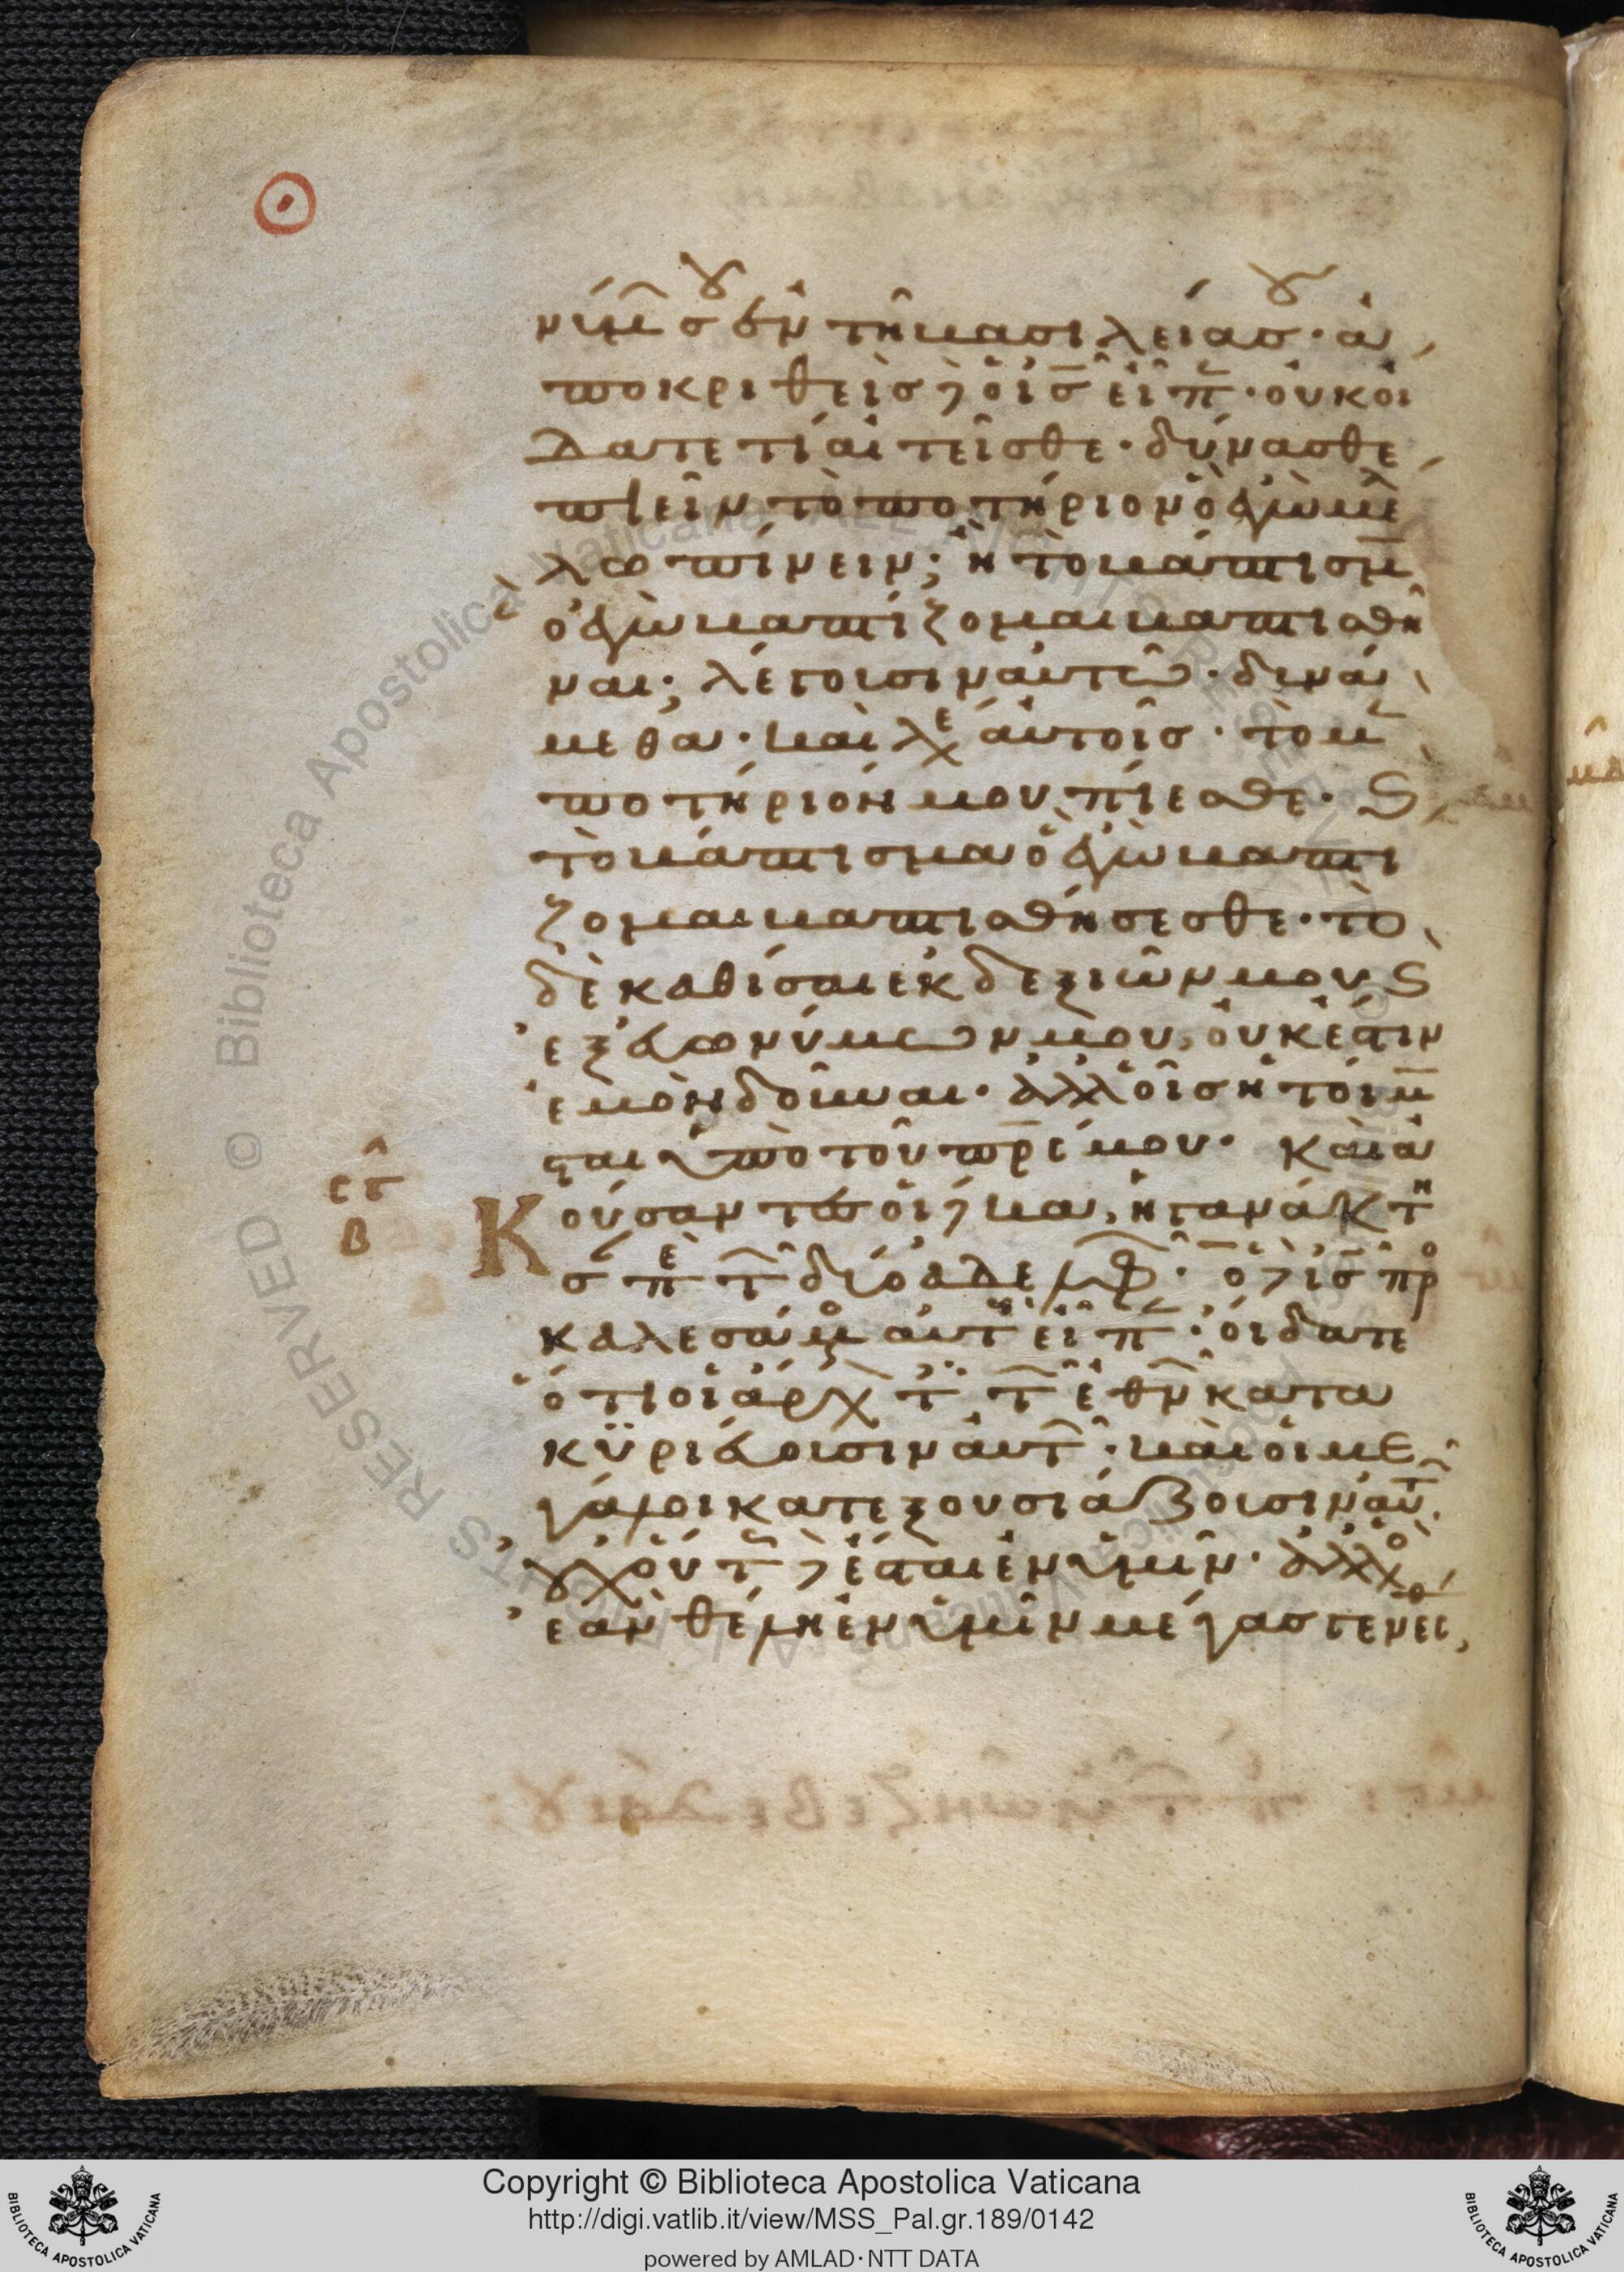 νύμ σου ἐν τῇ βασιλείᾳ σου· ἀ
ποκριθεὶς δὲ ὁ ις εἶπ· οὐκ οἴ
δατε τί αἰτεῖσθε· δύνασθε
πιεῖν τὸ ποτήριον ὃ ἐγὼ μέ
λλω πίνειν; ἢ τὸ βάπτισμ
ὃ ἐγὼ βαπτίζομαι βαπτισθῆ
ναι; λέγουσιν αὐτῶ· δυνά
μεθα· καὶ λέγ αὐτοῖς· τὸ μ
ποτήριόν μου πίεσθε· S
τὸ βάπτισμα ὃ ἐγὼ βαπτί
ζομαι βαπτισθήσεσθε· τὸ
δὲ καθίσαι ἐκ δεξιῶν μου S
ἐξ εὐωνύμων μου, οὐκ ἔστιν
ἐμὸν δοῦναι· ἀλλ οἷς ἡτοίμ
σται ὑπὸ τοῦ πρς μου· καὶ ἀ
κούσαντες οἱ δέκα, ἠγανάκτη
σ πε τ δύο ἀδελφ· ὁ δὲ ις προ
καλεσάμ αὐτ εἶπ· οἴδατε
ὅτι οἱ ἄρχ τ τ ἐθν κατα
κϋριεύουσιν αὐτ· καὶ οἱ με
γάλοι κατεξουσιάζουσιν αὐτ.
οὐχ οὕτ δὲ ἔσται ἐν ὑμῖν· ἀλλ ὃς
ἐὰν θέλη ἐν ὑμῖν μέγας γενέσ
ετ
β
Copyright © Biblioteca Apostolica Vaticana
http://digi.vatlib.it/view/MSS_Pal.gr.189/0142
powered by AMLAD·NTT DATA